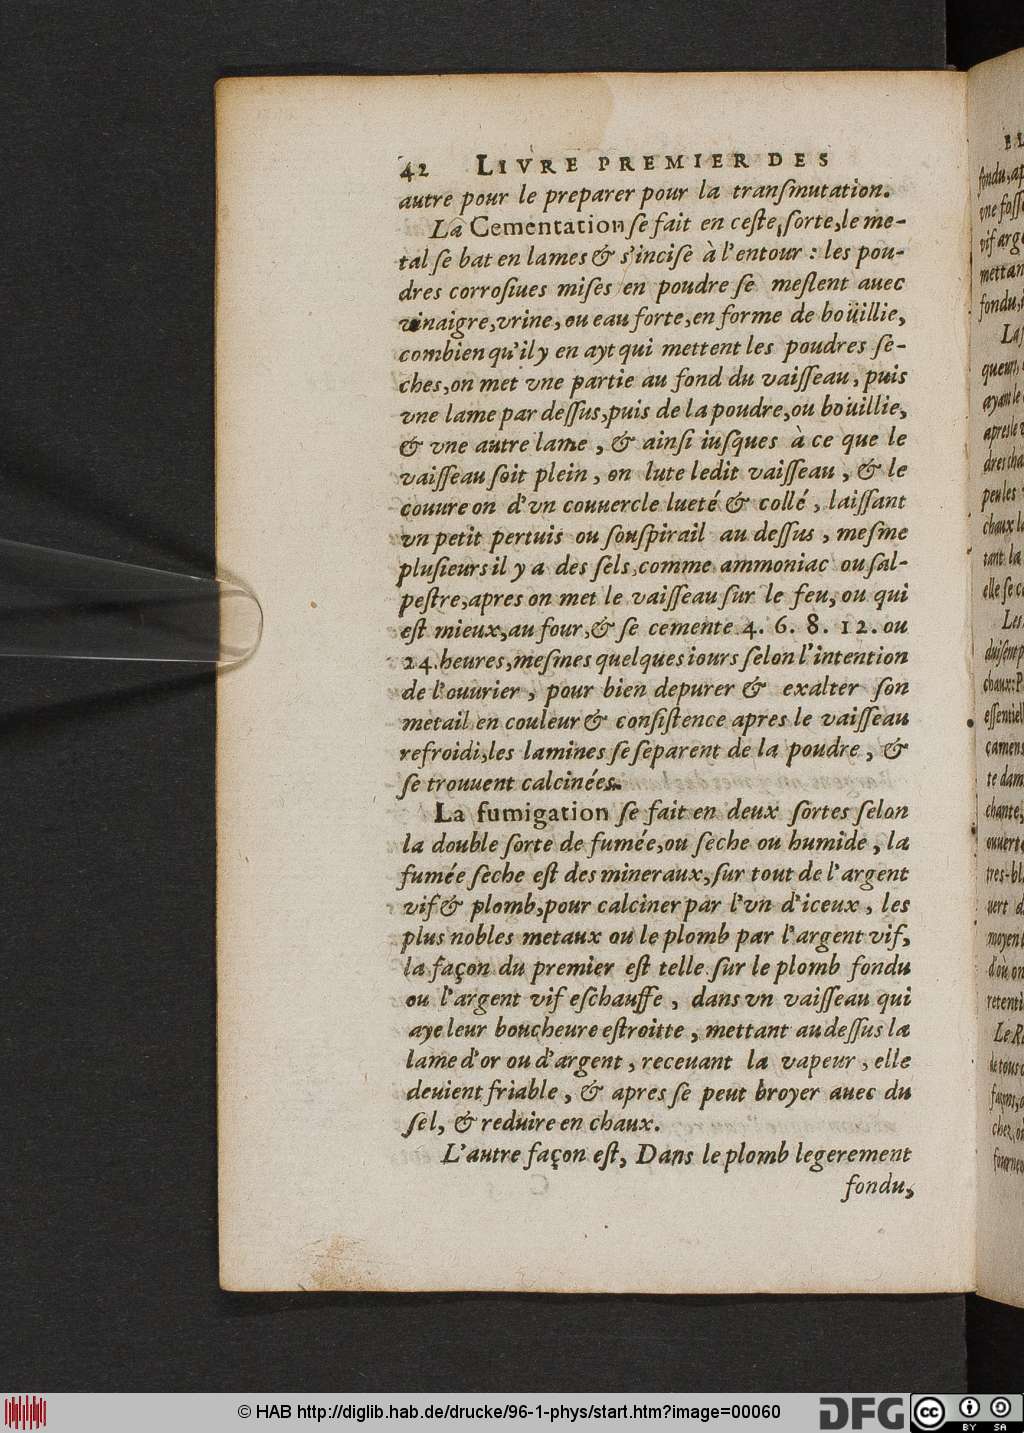 42 LIVRE PREMIER DES
autre pour le preparer pour la tranſmutation.
La Cementation ſe fait en ceſte, ſorte, le me-
tal ſe bat en lames & s'inciſe à l'entour : les pou-
dres corroſiues miſes en poudre ſe meſlent auec
vinaigre, vrine, ou eau forte, en forme de boüillie,
combien qu'il y en ayt qui mettent les poudres ſe-
ches, on met vne partie au fond du vaiſſeau, puis
vne lame par deſſus, puis de la poudre, ou boüillie,
& vne autre lame, & ainſi iuſques à ce que le
vaiſſeau ſoit plein, on lute ledit vaiſſeau, & le
couure on d'vn couuercle lueté & collé, laiſſant
vn petit pertuis ou ſouſpirail au deſſus, meſme
pluſieurs il y a des ſels, comme ammoniac ou ſal-
peſtre, apres on met le vaiſſeau ſur le feu, ou qui
eſt mieux, au four, & ſe cemente 4. 6. 8. 12. ou
24. heures, meſmes quelques iours ſelon l'intention
de l'ouurier, pour bien depurer & exalter ſon
metail en couleur & conſiſtence apres le vaiſſeau
refroidi, les lamines ſe ſeparent de la poudre, &
ſe trouuent calcinées.
La fumigation ſe fait en deux ſortes ſelon
la double ſorte de fumée, ou ſeche ou humide, la
fumée ſeche eſt des mineraux, ſur tout de l'argent
vif & plomb, pour calciner par l'vn d'iceux, les
plus nobles metaux ou le plomb par l'argent vif,
la façon du premier eſt telle ſur le plomb fondu
ou l'argent vif eſchauffe, dans vn vaiſſeau qui
aye leur boucheure eſtroitte, mettant au deſſus la
lame d'or ou d'argent, receuant la vapeur, elle
deuient friable, & apres ſe peut broyer auec du
ſel, & reduire en chaux.
L'autre façon eſt, Dans le plomb legerement
fondu,
© HAB http://diglib.hab.de/drucke/96-1-phys/start.htm?image=00060
DFG
cc BY SA